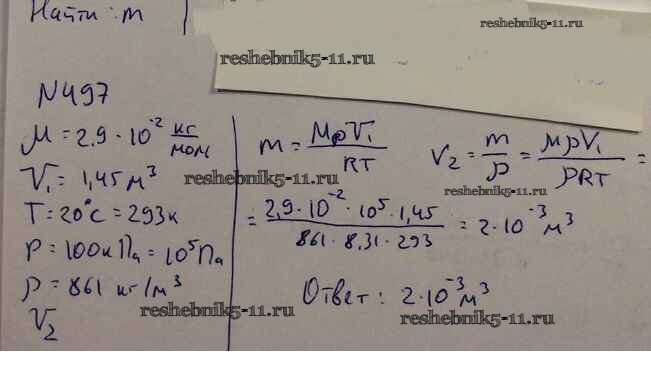 Найти: m
reshebnik5-11.ru
reshebnik5-11.ru
N497
M = 2,9 · 10^-2 кг/моль
V₁ = 1,45 м³
T = 20°C = 293к
P = 100кПа = 10⁵Па
ρ = 861 кг/м³
V₂
m = MpV₁/RT
V₂ = m/ρ = MpV₁/ρRT =
reshebnik5-11.ru
reshebnik5-11.ru
= 2,9·10^-2 · 10⁵ · 1,45 / 861 · 8,31 · 293 = 2·10^-3 м³
Ответ: 2·10^-3 м³
reshebnik5-11.ru
reshebnik5-11.ru